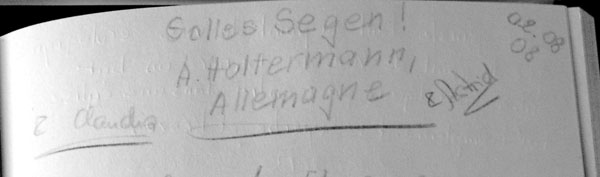 Gottes Segen!
A. Holtermann,
Allemagne
& Claudia
& Astrid
02.08
08